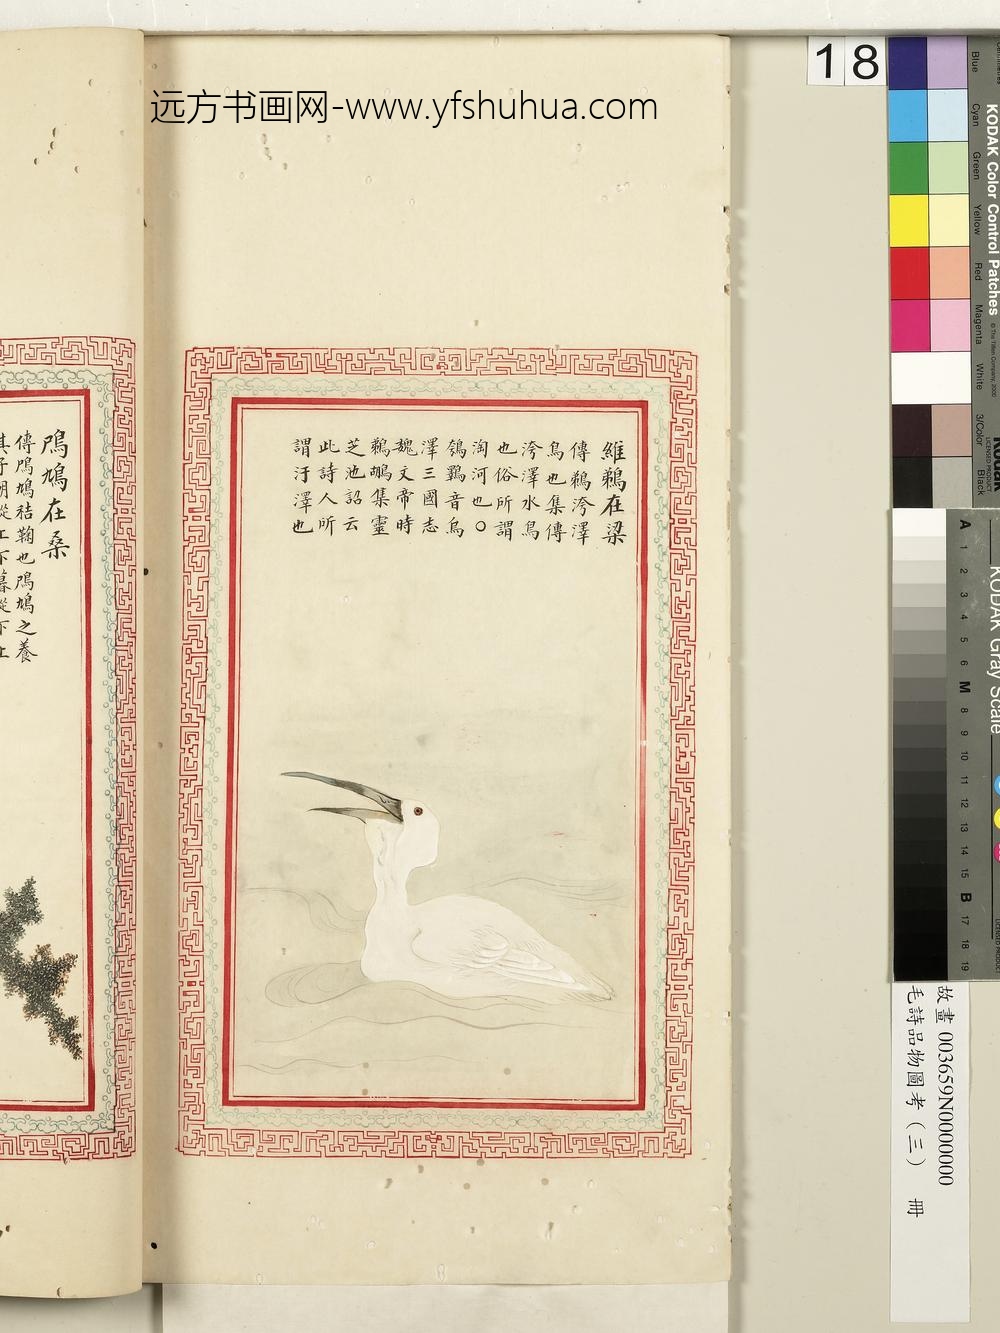 远方书画网-www.yfshuhua.com
18
維鵜在梁
傳鵜洿澤
鳥也集傳
洿澤水鳥
也俗所謂
淘河也○
鴮鸅音烏
澤三國志
魏文帝時
鵜鶘集靈
芝池詔云
此詩人所
謂汙澤也
鳲鳩在桑
傳鳲鳩秸鞠也鳲鳩之養
其子朝從上下暮從下上
KODAK Color Control Patches
© The Tiffen Company, 2000
Blue
Cyan
Green
Yellow
Red
Magenta
White
3/Color
Black
Kodak
LICENSED PRODUCT
KODAK Gray Scale
A 1 2 3 4 5 6 M 8 9 10 11 12 13 14 15 B 17 18 19
故畫 003659N0000000
毛詩品物圖考（三） 冊